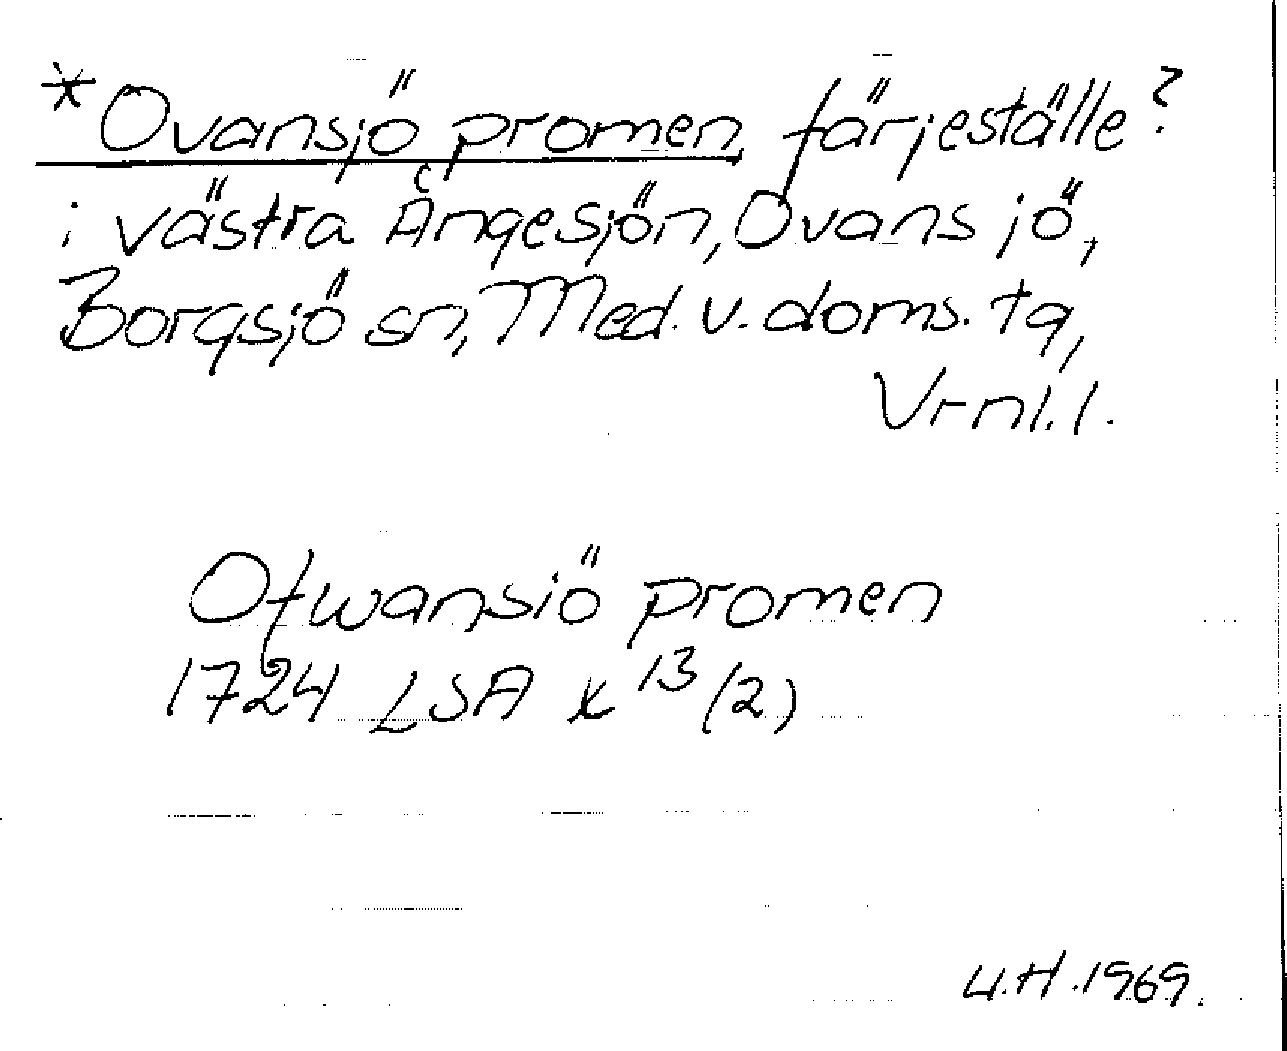 *Ovansjö promen, färjeställe?
i västra Ångesjön, Ovansjö,
Borgsjö sn, Med. v. doms. tg,
Vrnl. l.
Ofwansiö promen
1724 LSA x 13 (2)
U.H. 1969.